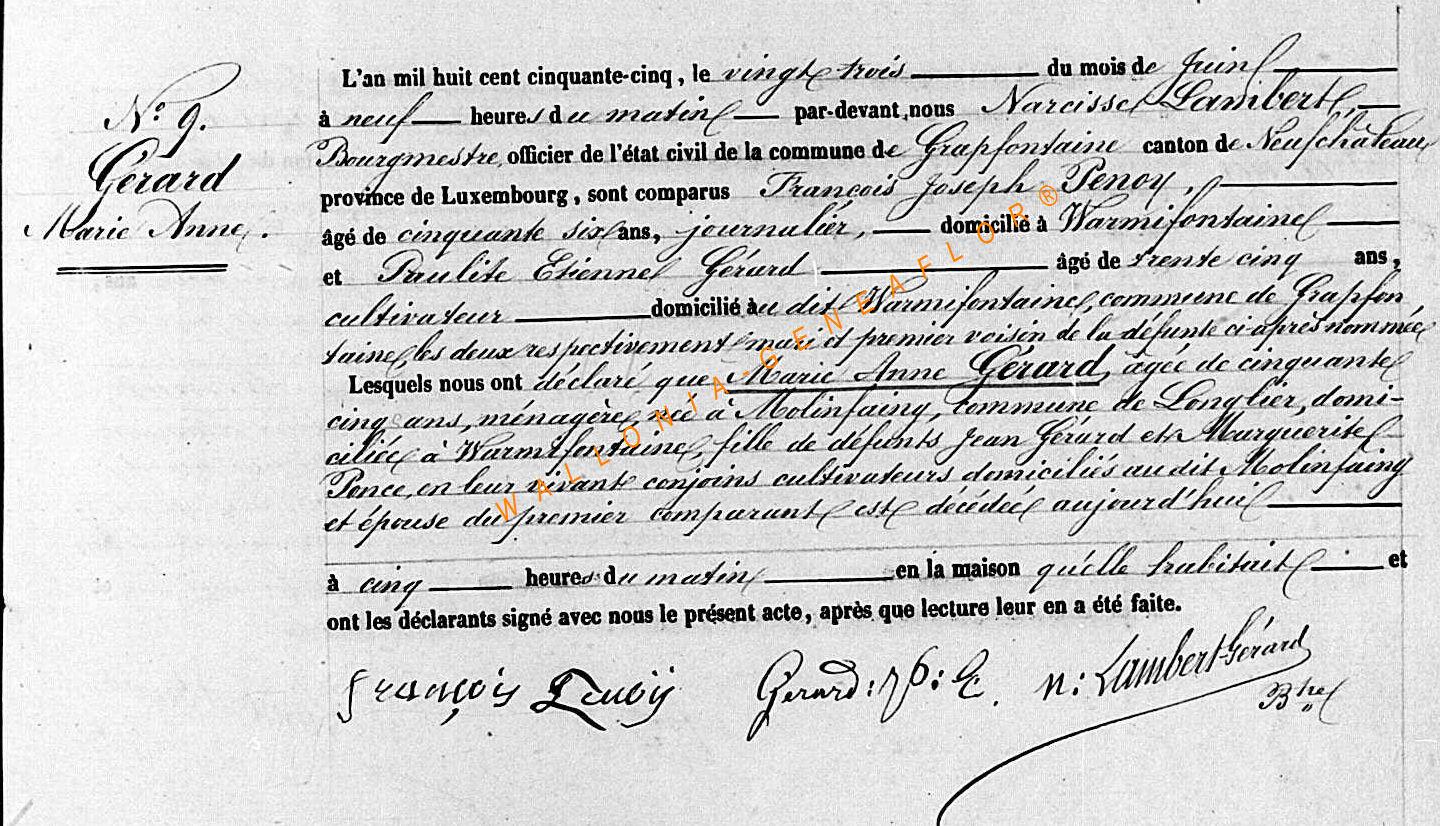 N° 9.
Gérard
Marie Anne.
L'an mil huit cent cinquante-cinq, le vingt trois du mois de Juin
à neuf heures du matin par-devant, nous Narcisse Lambert,
Bourgmestre, officier de l'état civil de la commune de Grapfontaine canton de Neufchâteau
province de Luxembourg, sont comparus François Joseph Penoy,
âgé de cinquante six ans, journalier, domicilié à Warmifontaine
et Paulite Etienne Gérard âgé de trente cinq ans,
cultivateur domicilié au dit Warmifontaine, commune de Grapfon
taine, les deux respectivement mari et premier voisin de la défunte ci-après nommée
Lesquels nous ont déclaré que Marie Anne Gérard, agée de cinquante
cinq ans, ménagère, née à Molinfaing, commune de Longlier, domi-
ciliée à Warmifontaine, fille de défunts Jean Gérard et Marguerite
Ponce, en leur vivant conjoins cultivateurs domiciliés au dit Molinfaing
et épouse du premier comparant est décédée aujourd'hui
à cinq heures du matin en la maison qu'elle habitait et
ont les déclarants signé avec nous le présent acte, après que lecture leur en a été faite.
françois Gerard: p: E. n: Lambert-Gérard
Bhre
WALLONIA-GENEAFLOR®